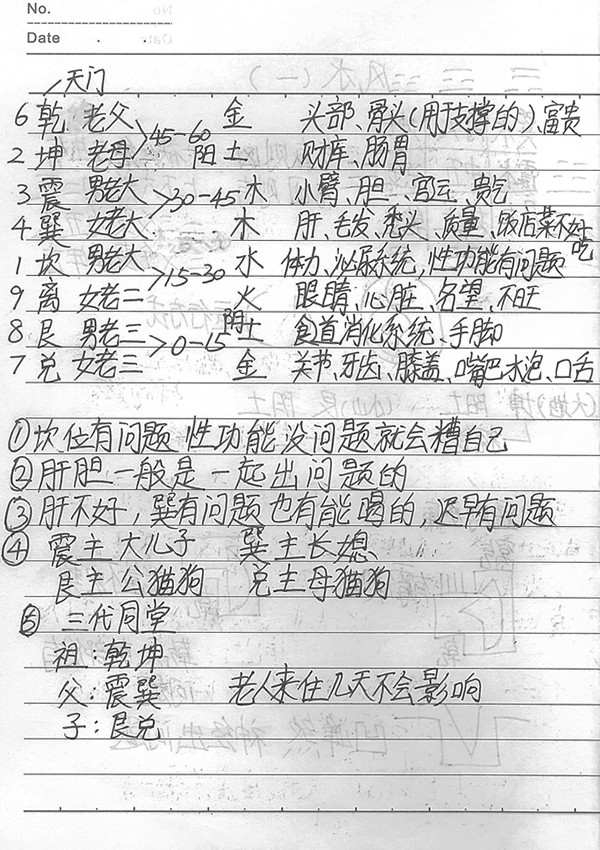 No.
Date . .
天门
6 乾 老父 >45-60 金 头部、骨头(用于支撑的)、富贵
2 坤 老母 阳土 财库、肠胃
3 震 男老大 >30-45 木 小臂、胆、官运、贵气
4 巽 女老大 木 肝、毛发、秃头、质量、饭店菜不好吃
1 坎 男老二 >15-30 水 体力、泌尿系统、性功能有问题
9 离 女老二 火 眼睛、心脏、名望、不旺
8 艮 男老三 >0-15 阴土 食道消化系统、手脚
7 兑 女老三 金 关节、牙齿、膝盖、嘴巴水泡、口舌
①坎位有问题 性功能没问题就会糟自己
②肝胆一般是一起出问题的
③肝不好,巽有问题也有能喝的,迟早有问题
④ 震主大儿子 巽主长媳
艮主公猫狗 兑主母猫狗
⑤ 三代同堂
祖:乾坤
父:震巽 老人来住几天不会影响
子:艮兑